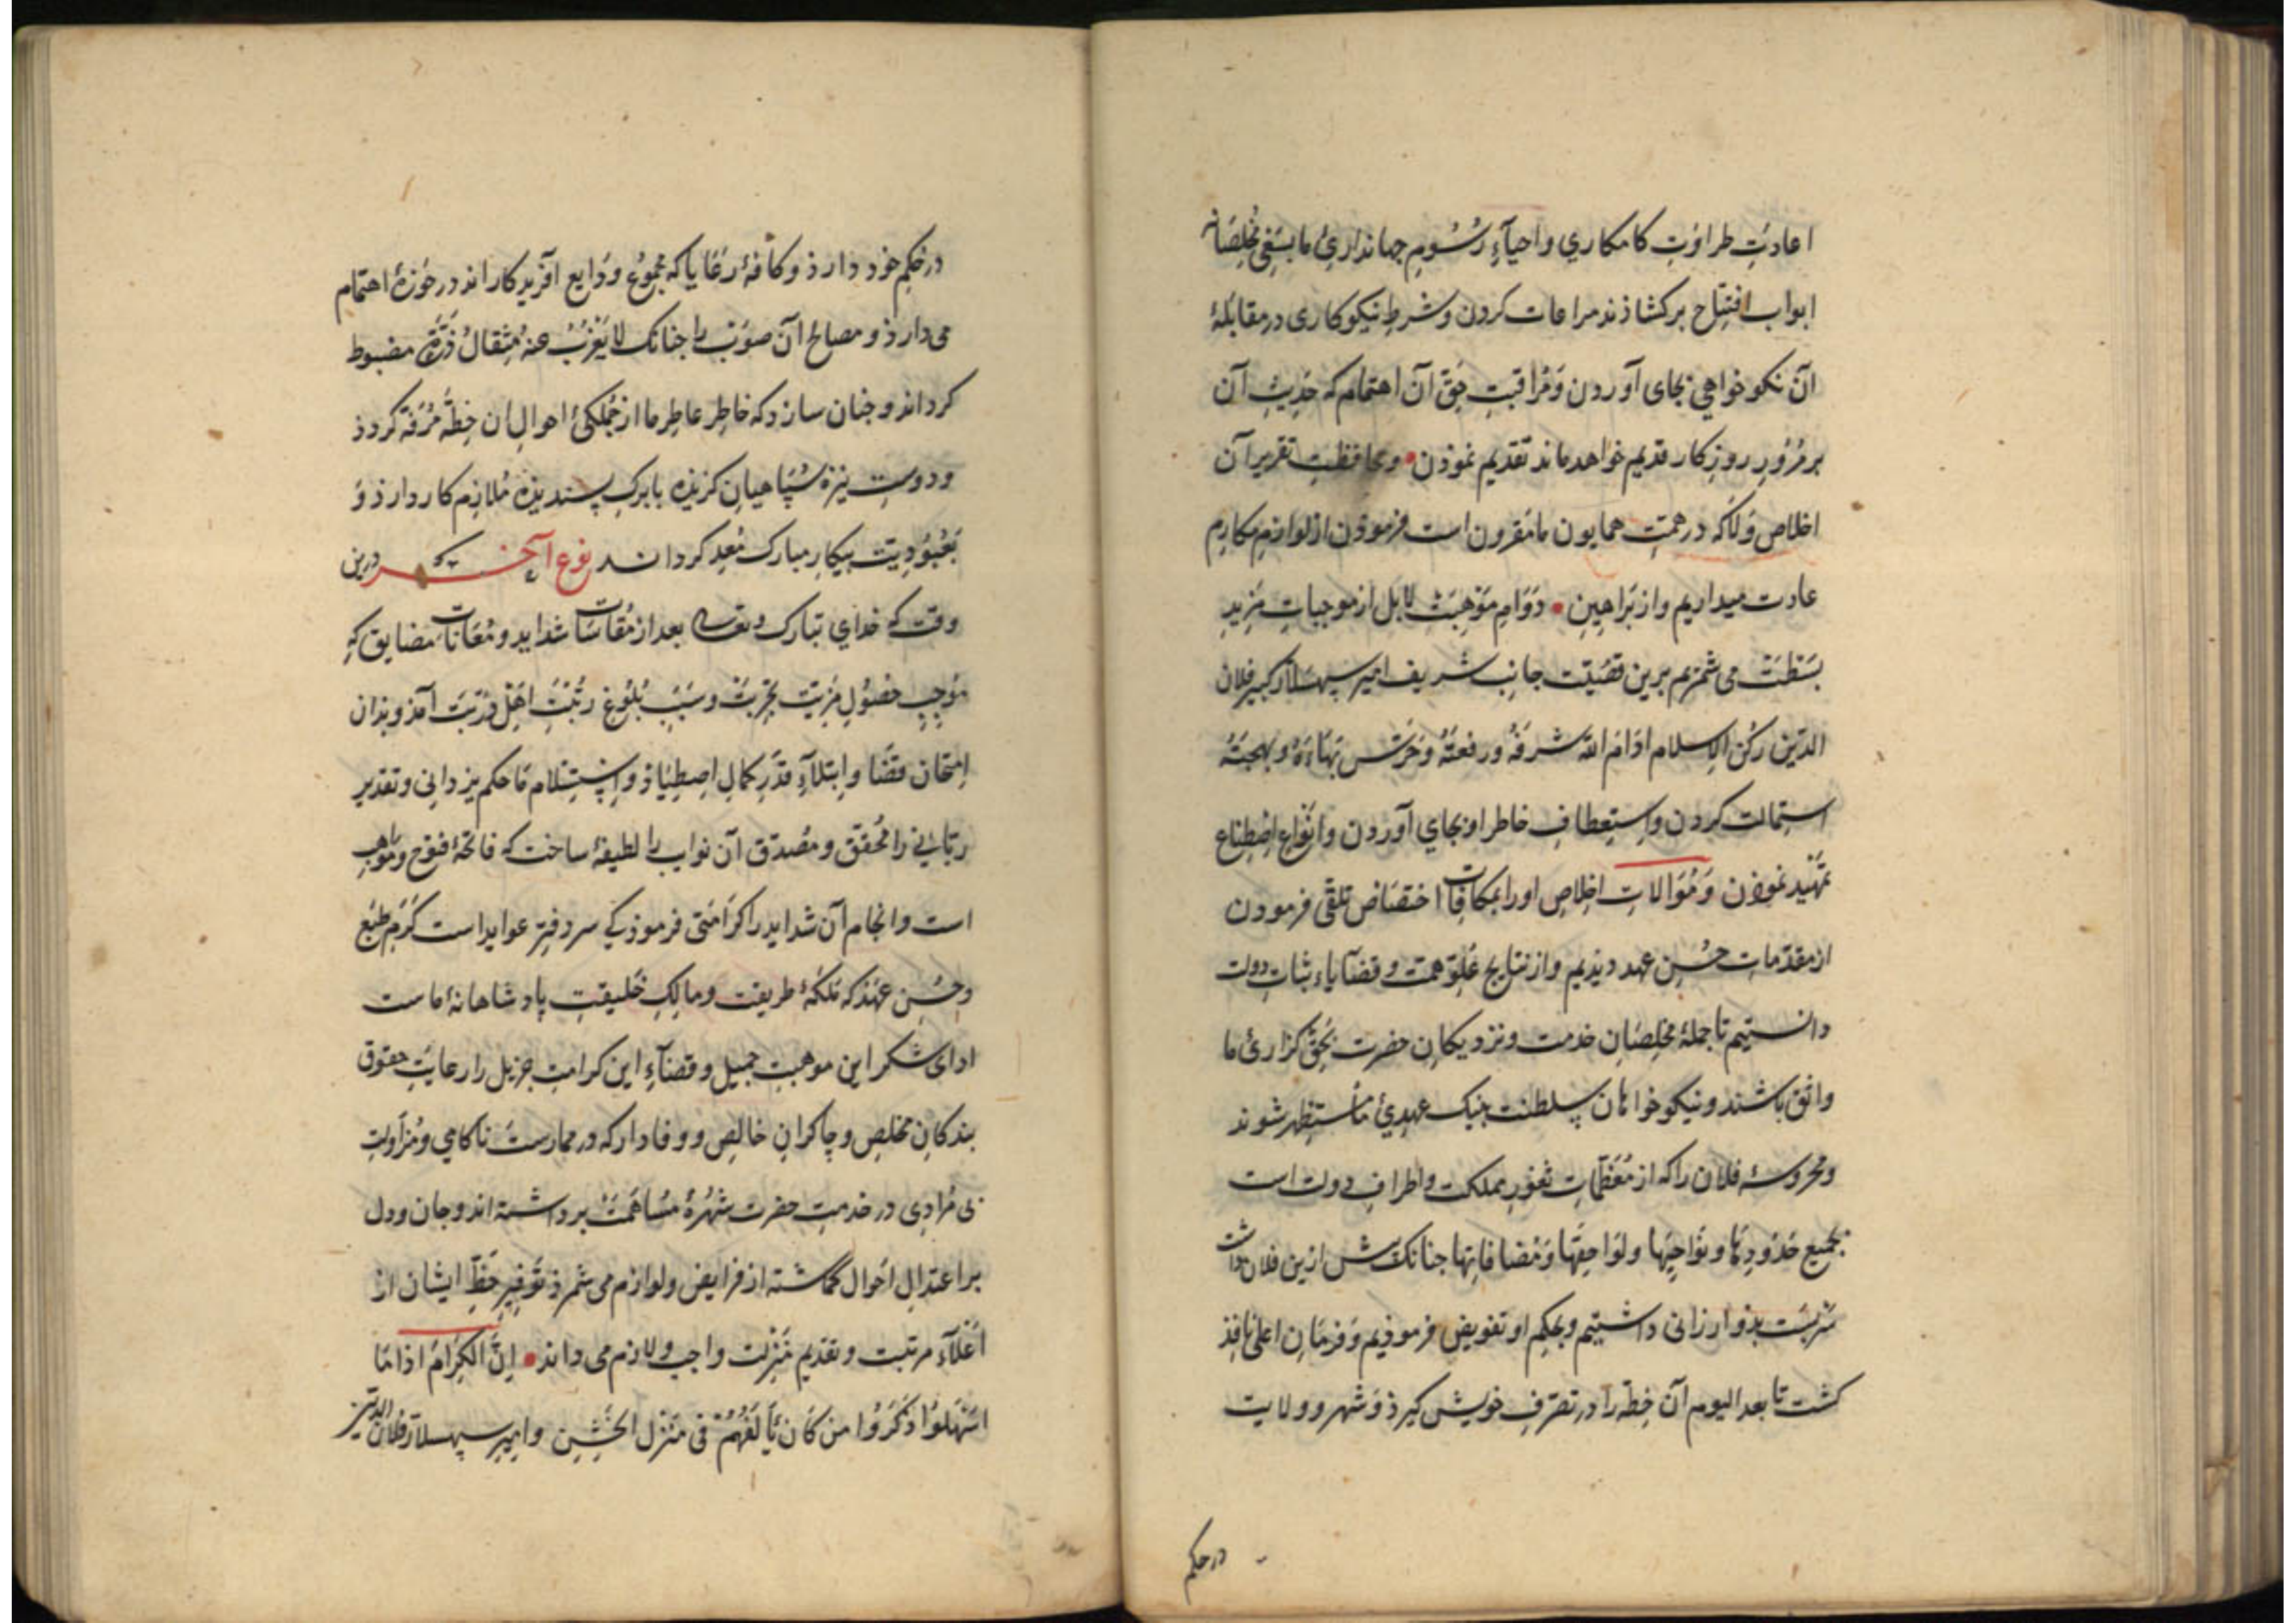 اعادتِ طراوتِ کامکاری و احیآءِ رُسُومِ جهانداریِٔ ما بسَعْیِ مُخلِصَانه
ابواب افتِتاح برکشاذند مراعات کردن و شرطِ نیکوکاری در مقابلهٔ
آن نکو خواهی بجای آوردن وَ مُراقبتِ حَقِّ آن اهتمام که حَدِیثِ آن
بر مُرُورِ روزکار قدیم خواهد ماند تقدیم نموذن • و محافظت تقریر آن
اخلاص و لاکه در همّتِ همایون ما مَقرون است فرموذن از لوازمِ مکارم
عادت میداریم و از بَراهینِ • دَوَامِ مَوْهِبَتْ لا بل از موجباتِ مَزیدِ
بَسْطَتْ می شمُریم برین قضیّت جانِب شریف امیر سپهسلار کبیر فلان
الدّین رکن الاسلام ادَامَ اللّه شرفَهُ و رفعتَهُ وَ حَرَسَ بَهاءَهُ و بهجتَهُ
استمالت کردن و استِعطافِ خاطر او بجای آوردن و انواع اِصْطِناع
تمْهید نموذن وَ مُوَالاتِ اخلاصِ او را بمکافات اختصَاص تلقّی فرمودن
از مقدّماتِ حُسْنِ عهد دیذیم و از نتایج عُلوّ همّت و قضآیاءِ ثباتِ دولت
دانستیم تا جملهٔ مخلِصَانِ خدمت و نزدیکانِ حضرت بحَقّ کزاریِٔ ما
واثق باشند و نیکو خواهان سلطنت بنیک عهدیِٔ ما مُستظهر شوند
و محروسهٔ فلان را که از مُعَظّماتِ ثغورِ مملکت و اطرافِ دولت است
بجمیع حُدُودِها و نَوَاحیها و لواحِقِها وَ مُضافاتِها جنانک پیش ازین فلان داشت
مَرتبَت بذو ارزانی داشتیم و بحکم او تفویض فرموذیم وَ فرمَانِ اعلی نافِذ
کشت تا بعد الیوم آن خِطّه را در تصَرّفِ خویش کیرذ وَ شهر و ولایت
درحکم
در حُکمِ خود دارذ و کافّهٔ رَعَایا که مجموُعِ وَدَایع آفریدکاراند در حَوْزهٔ اهتمام
می دارذ و مصالح آن صوْبْ را جنانک لا یَعْزُبُ عنهُ مِثقالُ ذَرَّةٍ مضبوط
کرداند و جنان سازد که خاطرِ عاطرِ ما از جُملکیِٔ احوالِ آن خِطّه مُرَفّه کردذ
و دوست نیزه سُپَاهیانِ کزیذه بابرکِ پسندیذه مُلازمِ کار دارذ وَ
بَعُبُودِیَّت بیکارِ مبارک مُعِد کرداند نوعِ آخَر که درین
وقت که خدای تبارک و تعالی بعد از مُقاسَاتِ شداید و مُعَاناتِ مضایق که
مُوجِبِ حصُولِ مَزِیّتِ تجرِبَتْ و سَبَبِ بُلُوغِ رُتْبَتِ اهل دُرْبَتْ آمذ و بذان
اِمتحان قضَا و اِبتلآءِ قدَرِ کمالِ اصطِیاذ و اِسْتِسْلامِ مَا حکم یزدانی و تقدیر
ربّانی را مُحَقّق و مُصدّق آن نوایب را لطیفهٔ ساخت که فاتحهٔ فتوح و مَوَاهِب
است و انجام آن شداید را کرَامَتی فرموذ کی سر دفترِ عواید است کَرَمِ طَبْع
و حُسْنِ عَهْد که مَلکهٔ طریقت و مالِکِ خلیقتِ پادشاهانهٔ ماست
ادای شکر این موهبتِ جمیل و قضآءِ این کرامتِ جزیل را رعایتِ حقوق
بندکانِ مخلص و چاکرانِ خالص و وفادار که در ممارستِ ناکامی و مُزاولتِ
بی مُرادی در خدمتِ حضرت شُهْرهٔ مُسَاهَمَتْ برداشته اند و جان و دل
بر اعتدالِ احوال کماشته از فرایض و لوازم می شمرذ تَوْفِیرِ حَظِّ ایشان از
اَعْلآءِ مرتبت و تقدیم مَنزِلت واجب و لازم می داند • اِنَّ الْکِرَامَ اذَا مَا
اَسْهَلوُا ذَکَرُوا من کان یَأْلَفُهُمْ فی مَنْزلِ الخَشِنِ و امیر سپهسلار فلان الدّین